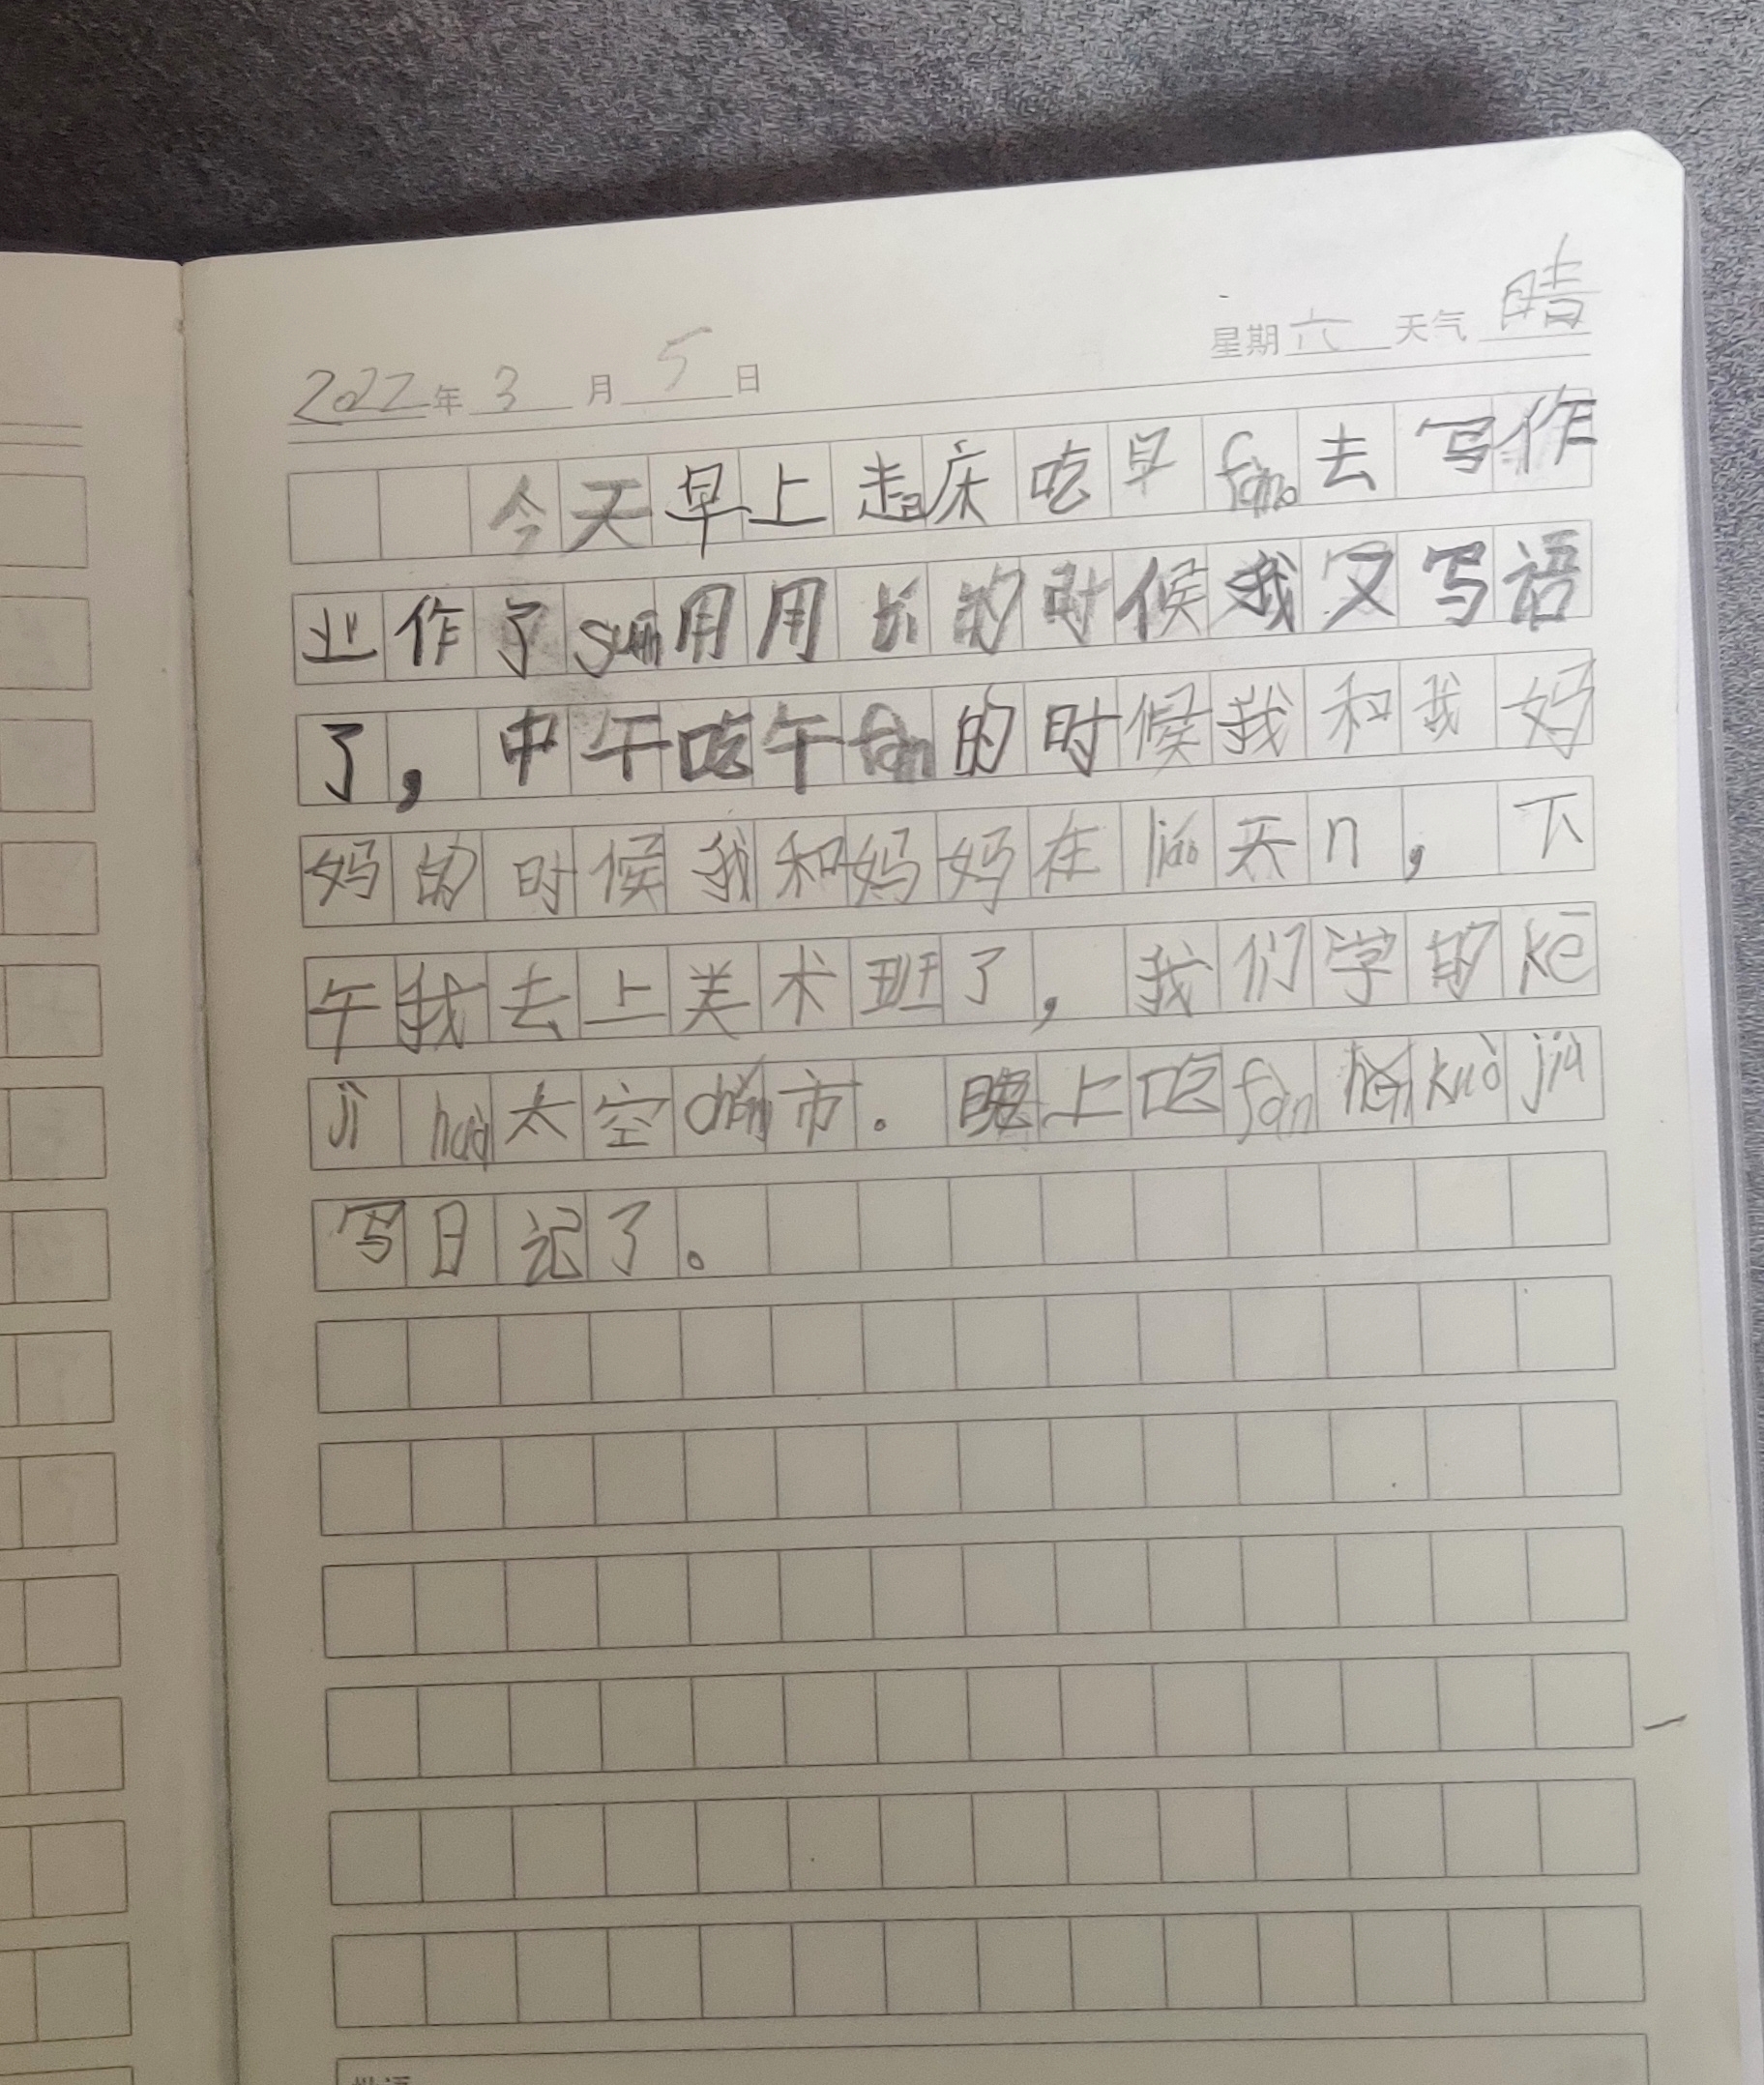 2022年3月5日 星期六 天气 晴
今天早上起床吃早fan。去写作
业作了 用用 的时候我又写语
了，中午吃午fan的时候我和我妈
妈的时候我和妈妈在liáo天n，下
午我去上美术班了，我们学的kē
jì huà太空chéng市。晚上吃fàn kuò jiù
写日记了。